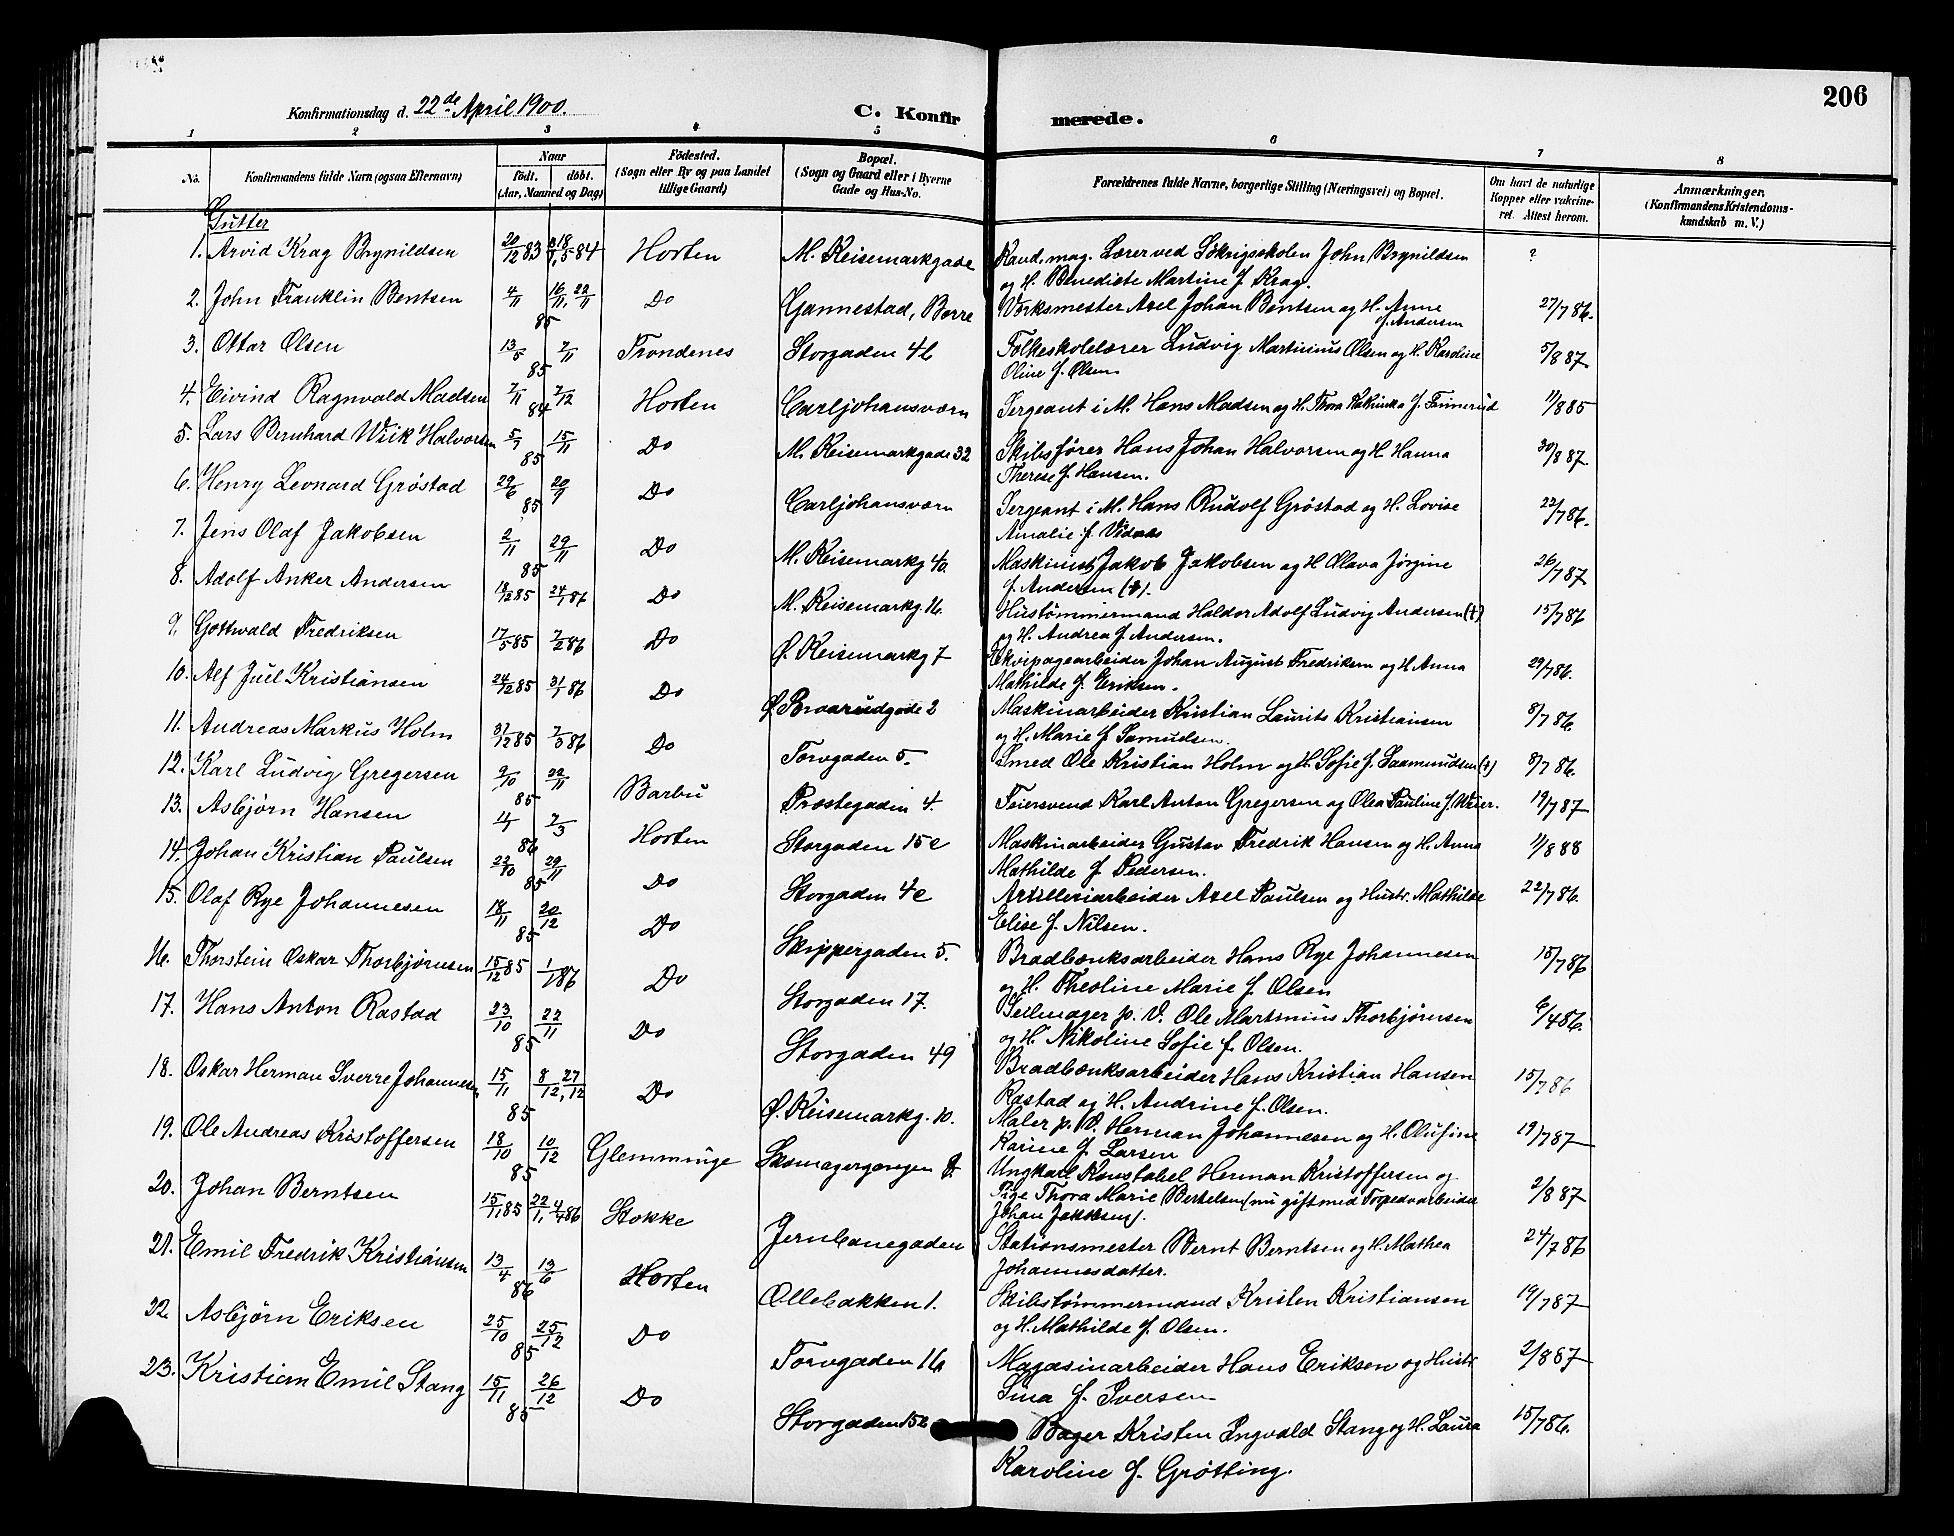 206
Konfirmationsdag d. 22de April 1900.
C. Konfirmerede.
1 2 3 4 5 6 7 8
No. Konfirmandens fulde Navn (ogsaa Efternavn) Naar födt. döbt. (Aar, Maaned og Dag) Födested. (Sogn eller By og paa Landet tillige Gaard) Bopæl. (Sogn og Gaard eller i Byerne Gade og Hus-No. Forældrenes fulde Navne, borgerlige Stilling (Næringsvei) og Bopæl. Om havt de naturlige Kopper eller vakcineret. Attest herom. Anmærkninger. (Konfirmandens Kristendomskundskab m. V.)
Gutter
1. Arvid Krag Brynildsen 20/12 83 Horten M. Keisemarkgade Kand. mag. Lærer ved Søkrigsskolen John Brynildsen ?
og H. Benedicte Martine f. Krag.
2. John Franklin Bentsen 4/11 85 16/11, 22/11 Do Gannestad, Borre Værksmester Axel Johan Bentsen og H. Anne 27/7 86.
f. Andersen
3. Ottar Olsen 13/5 85 7/11 Trondenes Storgaden 4b Folkeskolelærer Ludvig Martinius Olsen og H. Karoline 5/8 87
Oline f. Olsen
4. Eivind Ragnvald Madsen 7/11 84 7/12 Horten Carljohansværn Sergeant i M. Hans Madsen og H. Thora Kathinka f. Finnerud 11/8 85
5. Lars Bernhard Wiik Halvorsen 5/7 85 15/11 Do M. Keisemarkgade 32 Skibsfører Hans Johan Halvorsen og H. Hanna 30/8 87
Therese f. Hansen.
6. Henry Leonard Grøstad 29/6 85 20/9 Do Carljohansværn Sergeant i M. Hans Rudolf Grøstad og H. Lovise 22/7 86.
Amalie f.
7. Jens Olaf Jakobsen 2/11 85 29/11 Do M. Keisemarkg 40. Maskinist Jakob Jakobsen og H Olava Jørgine 26/7 87
f. Andersen (†).
8. Adolf Anker Andersen 18/12 85 24/1 86 Do M. Keisemarkg. 16. Hustømmermand Haldor Adolf Ludvig Andersen (†) 15/7 86
og H. Andrea f. Andersen.
9. Gottwald Fredriksen 17/5 85 7/2 86 Do Ø. Keisemarkg 7 Ekvipagearbeider Johan August Fredriksen og H. Anna 29/7 86.
Mathilde f. Eriksen.
10. Alf Juel Kristiansen 24/12 85 31/1 86 Do Ø. Braarudgade 2 Maskinarbeider Kristian Laurits Kristiansen 8/7 86.
og H. Marie f. Samuelsen.
11. Andreas Markus Holm 31/12 85 7/3 86 Do Torvgaden 5. Smed Ole Kristian Holm og H. Sofie f. Saamundsen (†) 8/7 86.
12. Karl Ludvig Gregersen 9/10 85 22/11 Barbu Prestegaden 4. Feiersvend Karl Anton Gregersen og Olea Pauline f. 19/7 87
13. Asbjørn Hansen 4/1 86 7/3 Horten Storgaden 15c Maskinarbeider Gustav Fredrik Hansen og H. Anna 11/8 88
Mathilde f. Pedersen.
14. Johan Kristian Paulsen 22/10 85 29/11 Do Storgaden 4c Artilleriarbeider Axel Paulsen og Hustr. Mathilde 22/7 86.
Elise f. Nilsen.
15. Olaf Rye Johannesen 18/11 85 20/12 Do Skippergaden 5. Bradbænksarbeider Hans Rye Johannesen 15/7 86
og H. Theoline Marie f. Olsen
16. Thorstein Oskar Thorbjørnsen 15/12 85 1/1 86 Do Storgaden 17. Seilmager p. V. Ole Martinius Thorbjørnsen 6/4 86.
og H. Nikoline Sofie f. Olsen.
17. Hans Anton Rastad 23/10 85 22/11 Do Storgaden 49 Bradbænksarbeider Hans Kristian Hansen 15/7 86
Rastad og H. Andrine f. Olsen.
18. Oskar Herman Sverre Johannesen 15/11 85 8/12, 27/12 Do Ø. Keisemarkg. 10. Maler p. V. Herman Johannesen og H. Olufine 19/7 87
Karine f. Larsen
19. Ole Andreas Kristoffersen 18/10 85 10/12 Glemminge Skomagergangen Ungkarl Konstabel Herman Kristoffersen og 2/8 87
Pige Thora Marie Bertelsen (nu gift med Torpedoarbeider
Johan Jakobsen).
20. Johan Berntsen 15/11 85 22/1, 4/4 86 Stokke Jernbanegaden Stationsmester Bernt Berntsen og H. Mathea 24/7 86
Johannesdatter.
21. Emil Fredrik Kristiansen 13/4 86 13/6 Horten Øllebakken 1. Skibstømmermand Kristen Kristiansen 19/7 87
og H. Mathilde f. Olsen.
22. Asbjørn Eriksen 25/10 85 25/12 Do Torvgaden 16 Magasinarbeider Hans Eriksen og Hustr. 2/8 87
Sina f. Iversen
23. Kristian Emil Stang 15/11 85 26/12 Do Storgaden 15b Bager Kristen Ingvald Stang og H. Laura 15/7 86.
Karoline f. Grøtting.